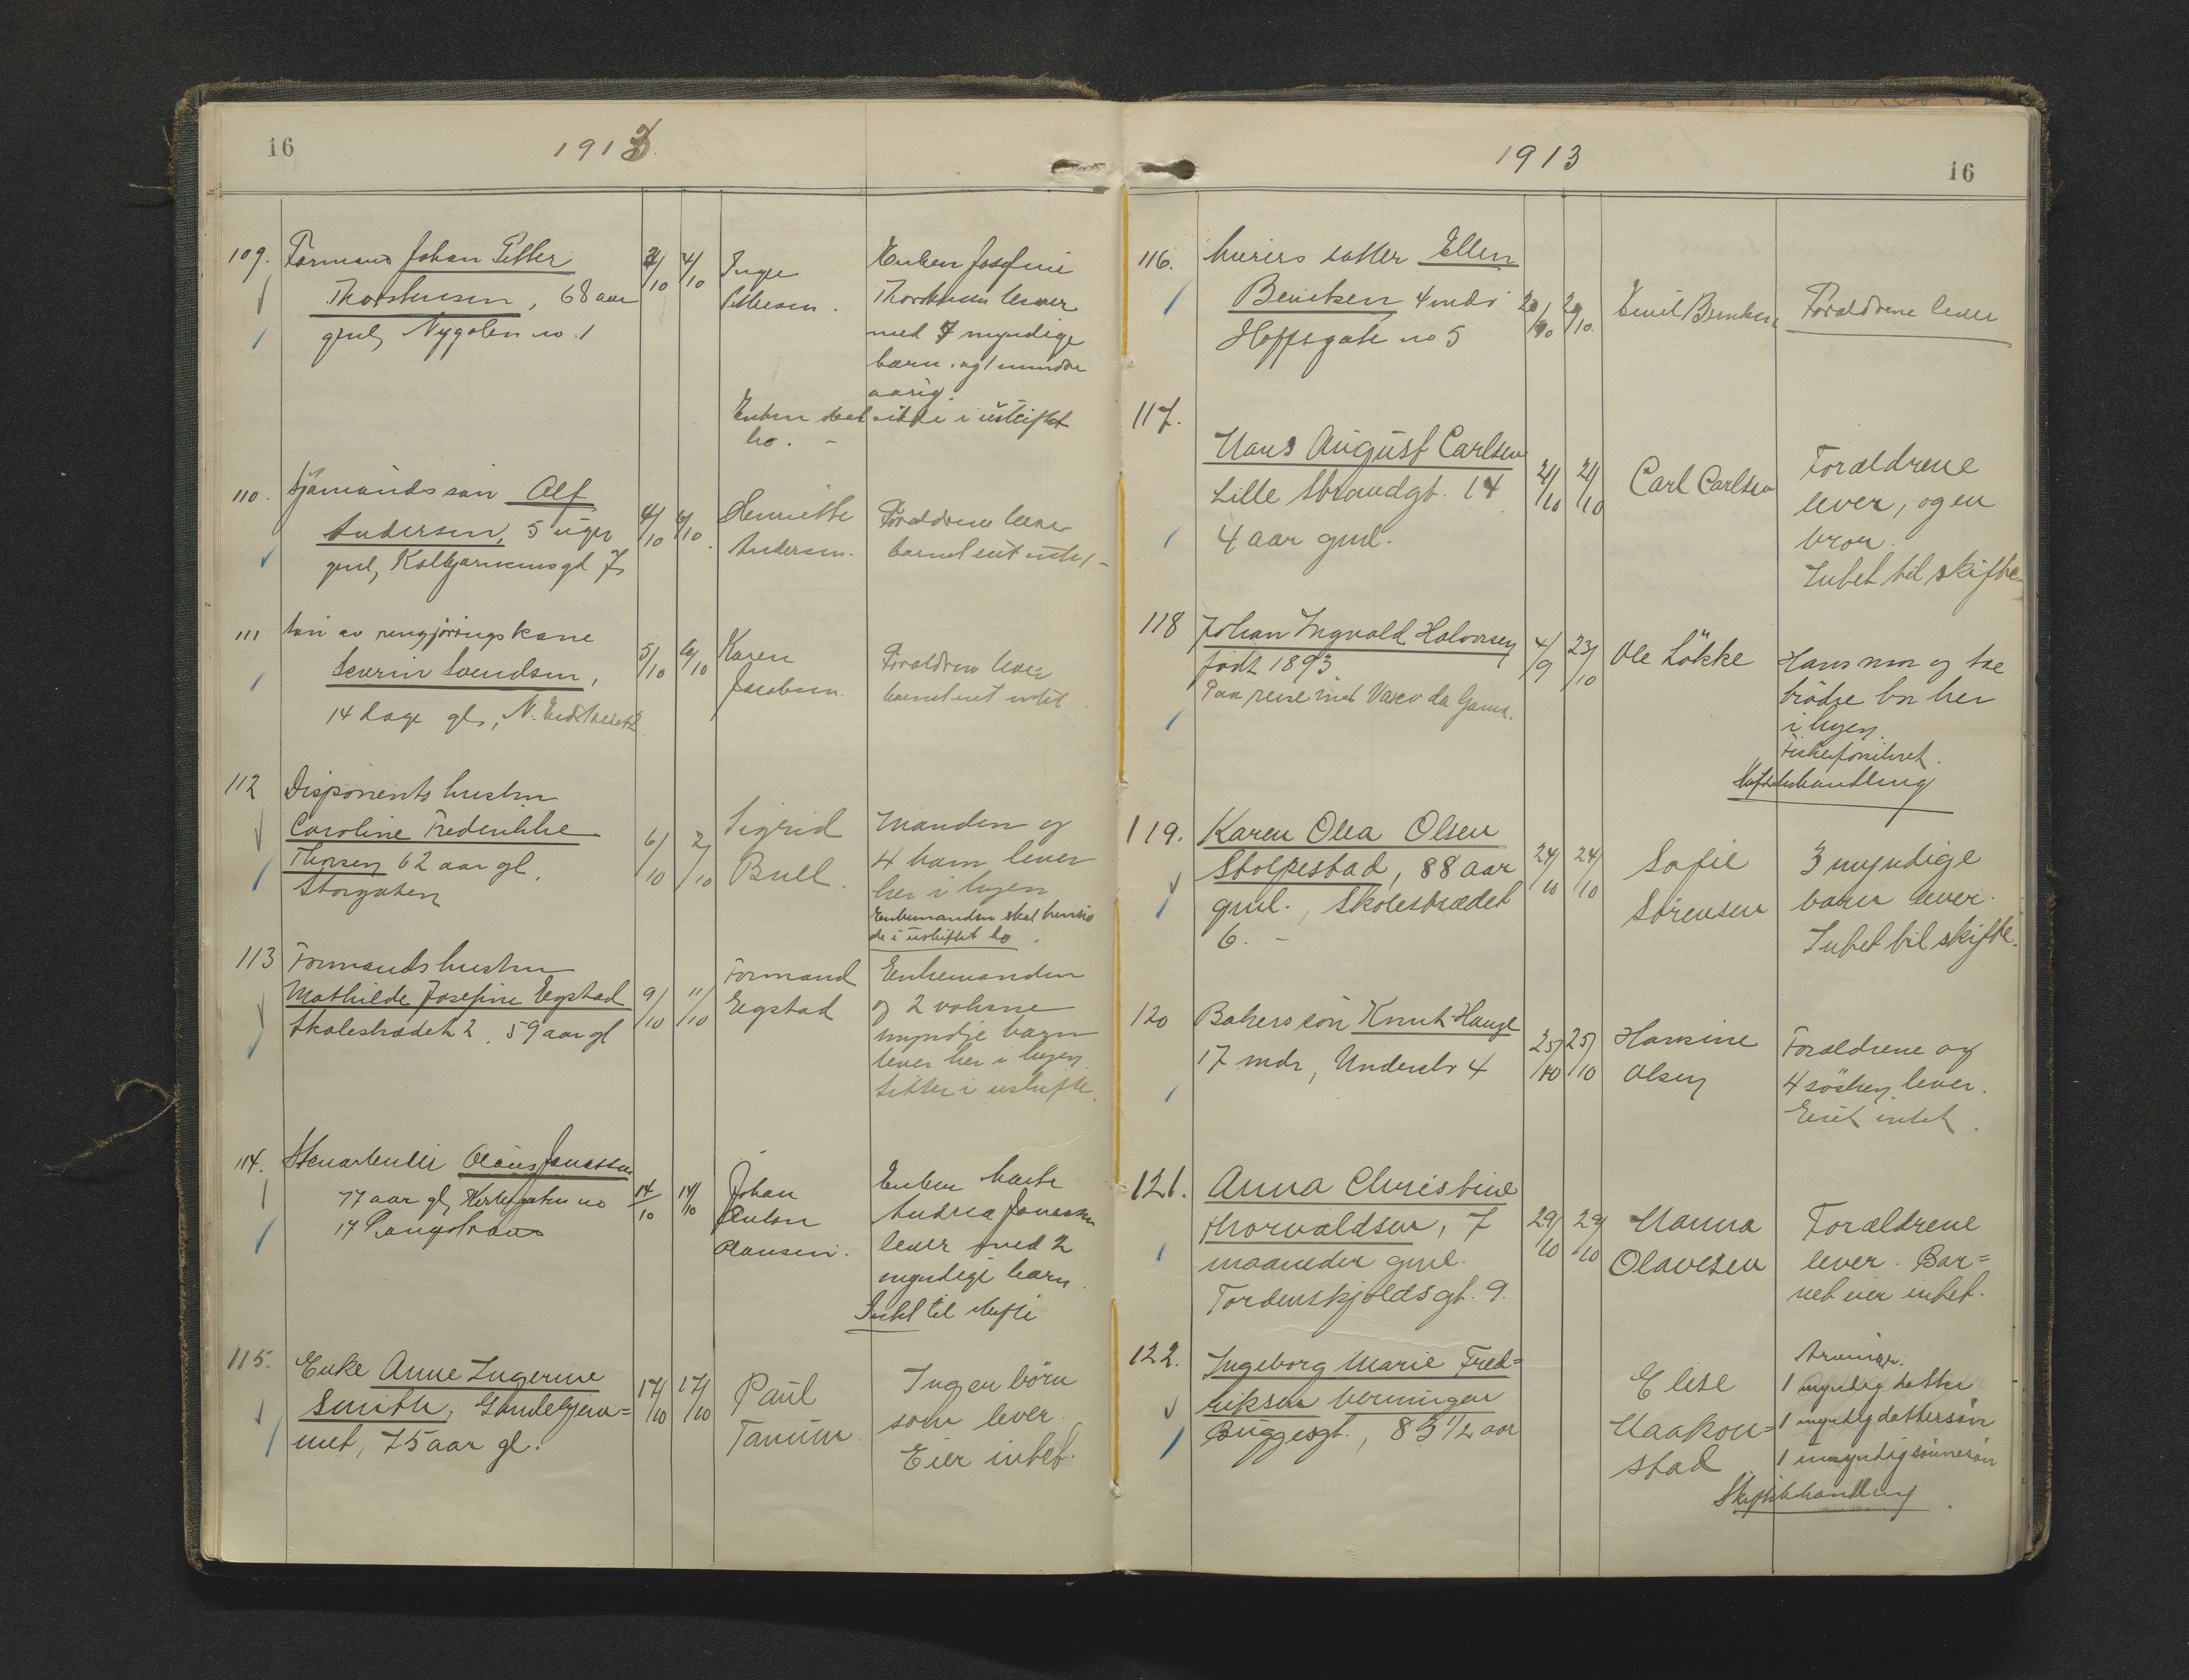 16
1913
109.
Formand Johan Petter
Thorstensen, 68 aar
gml, Nygaten no. 1
2/10
4/10
Inga
Pettersen.
Enken Josefine
Thorstensen lever
med 7 myndige
barn. og 1 mindre
aarig.
Enken skal sitte i uskiftet
bo. -
110.
Sjømands søn Alf
Andersen, 5 uger
gml,
7
4/10
6/10
Henriette
Andersen.
Forældrene lever
barnet eiet intet -
111
Søn av rengjöringskone
Severin Svendsen,
14 dage gl,
5/10
6/10
Karen
Jacobsen.
Forældrene lever
barnet eiet intet
112
Disponents hustru
Caroline Fredrikke
Thorsen 62 aar gl.
Storgaten
6/10
7/10
Sigrid
Bull.
Manden og
4 barn lever
her i byen
Enkemanden skal hensid
de i uskiftet bo.
113
Formands hustru
Mathilde Josefine Eegstad
Skolestrædet 2, 59 aar gl
9/10
11/10
Formand
Eegstad
Enkemanden
og 2 voksne
myndje barn
lever her i byen
Sitter i uskifte.
114.
Stenarbeider Olaus Jonassen
77 aar gl, no
17 Langestrand
14/10
14/10
Johan
Anton
Olausen.
Enken
Andrea Jonassen
lever med 2
myndige barn.
Intet til skifte
115.
Enke Anne Ingerine
Smith, Gamlehjem=
met, 75 aar gl.
17/10
17/10
Paul
Tanum.
Ingen börn
som lever.
Eier intet.
1913
16
116.
Murers datter Ellen
Berntsen 4 mdr
Hoffsgate no 5
20/10
20/10.
Emil Berntsen
Forældrene lever
117.
Hans August Carlsen
Lille Strandgt. 14
4 aar gml.
21/10
21/10
Carl Carlsen
Forældrene
lever, og en
bror.
Intet til skifte.
118
Johan Ingvald Halvorsen
født 1893.
Paa reise med Vasco da Gama.
4/9
23/10
Ole Løkke
Hans mor og tre
brødre bor her
i byen.
Skiftebehandling
119.
Karen Olea Olsen
Stolpestad, 88 aar
gml., Skolestrædet
6. -
24/10
24/10
Sofie
Sörensen
3 myndige
barn lever.
Intet til skifte.
120
Bakers søn Knut Hauge
17 mdr, Understr 4
25/10
25/10
Hansine
Olsen
Forældrene og
4 søsken lever.
Eiet intet.
121.
Anna Christine
Thorvaldsen, 7
maaneder gml.
Tordenskjoldsgt. 9.
29/10
29/10
Hanna
Olavesen
Forældrene
lever. Bar=
net eier intet.
122.
Ingeborg Marie Fred=
riksen Verningen
Buggesgt., 83 1/2 aar
Elise
Haakon=
stad
Arvinger:
1 myndig datter
1 myndig dattersøn
1 umyndig sønnesøn
Skiftebehandling.